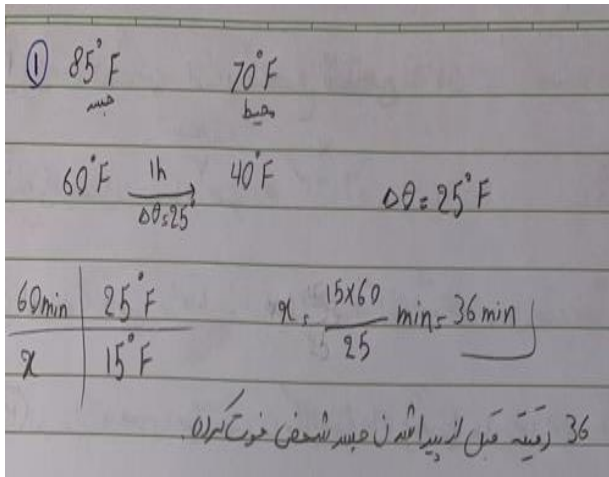 ① 85°F 70°F
جسد محیط
60°F 1h → 40°F Δθ = 25°F
Δθ = 25°
60min 25°F x = 15×60 / 25 min = 36 min
x 15°F
36 دقیقه قبل از پیدا شدن جسد شخص فوت کرده.